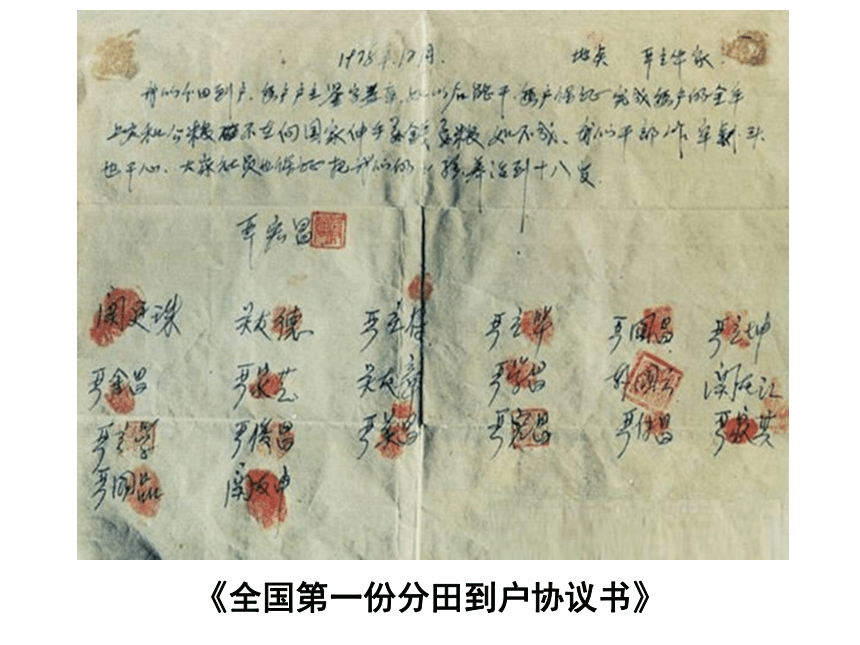 1978年12月. 地点 严立华家.
我们分田到户.每户户主签字盖章.如以后能干.每户保证完成每户的全年
上交和公粮 不在向国家伸手要钱要粮 如不成、我们干部作牢剎头
也干心、大家社员也保证把我们的小孩养活到十八岁.
严宏昌
关廷珠 关友德 严立符 严立华 严国昌 严立坤
严金昌 严家芝 关友章 严学昌 韩国云 关友江
严立学 严俊昌 严美昌 严宏昌 严付昌 严家其
严国品 关友申
《全国第一份分田到户协议书》